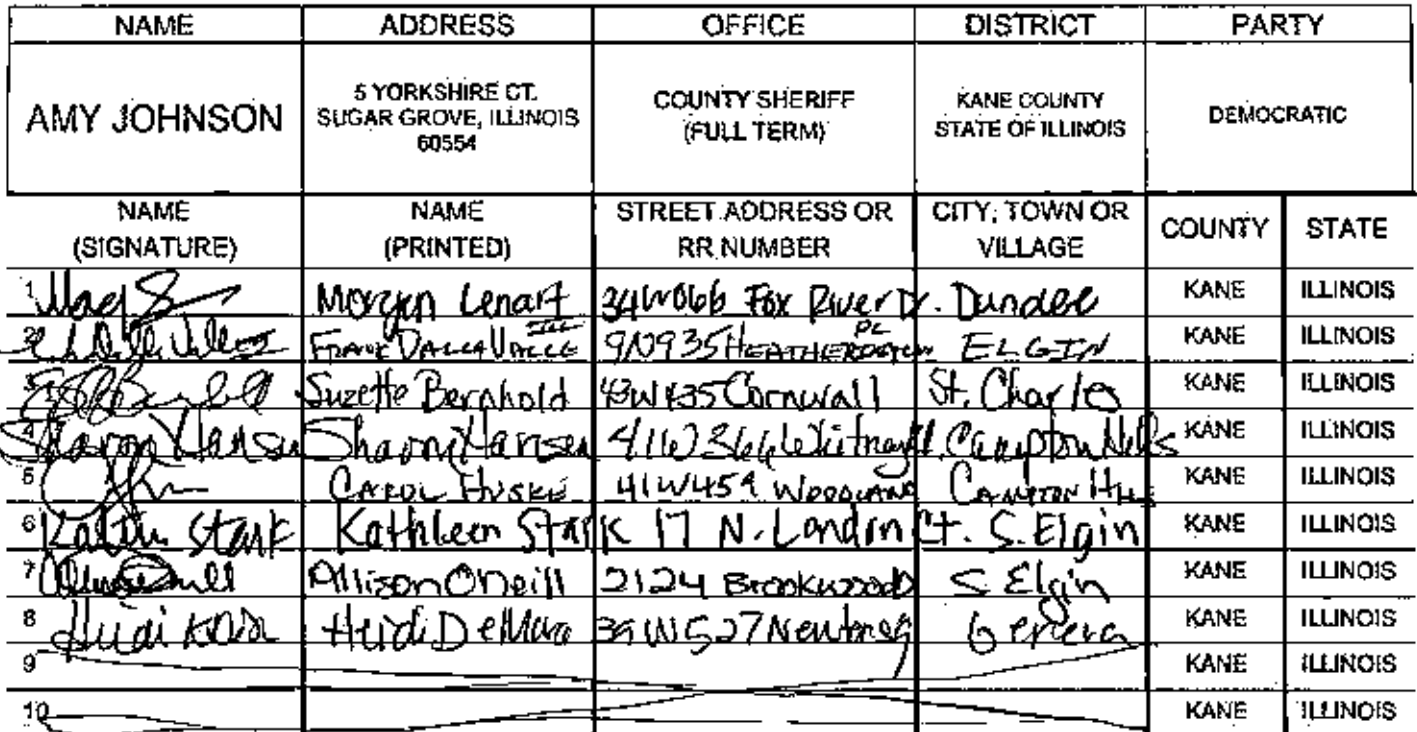 NAME ADDRESS OFFICE DISTRICT PARTY
AMY JOHNSON 5 YORKSHIRE CT. SUGAR GROVE, ILLINOIS 60554 COUNTY SHERIFF (FULL TERM) KANE COUNTY STATE OF ILLINOIS DEMOCRATIC
NAME (SIGNATURE) NAME (PRINTED) STREET ADDRESS OR RR NUMBER CITY, TOWN OR VILLAGE COUNTY STATE
1 Morgan Lenart 34W066 Fox River Dr. Dundee KANE ILLINOIS
2 Frank DallaValle III 9N935 HEATHERDOWN PL ELGIN KANE ILLINOIS
3 Suzette Bernhold Cornwall St. Charles KANE ILLINOIS
4 Sharon Hansen Sharon Hansen 41W366 Whitney Campton Hills KANE ILLINOIS
5 CAROL HUSKE 41W454 WOODLAND CAMPTON HILLS KANE ILLINOIS
6 Stark Kathleen Stark 17 N. London Ct. S. Elgin KANE ILLINOIS
7 Allison O'Neill 2124 Brookwood S Elgin KANE ILLINOIS
8 Heidi Heidi DeMarco 39W527 Newton Geneva KANE ILLINOIS
9 KANE ILLINOIS
10 KANE ILLINOIS